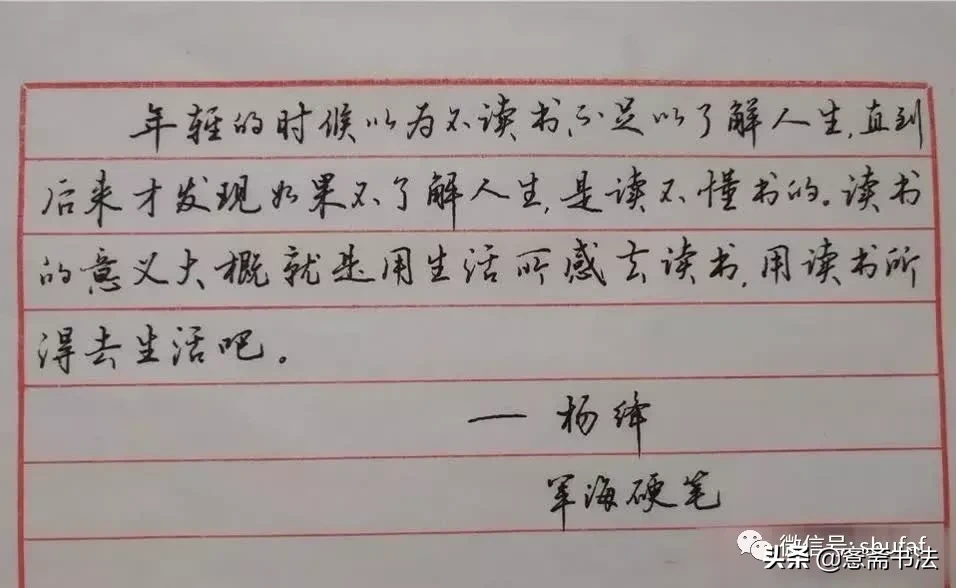 年轻的时候以为不读书不足以了解人生,直到
后来才发现如果不了解人生,是读不懂书的。读书
的意义大概就是用生活所感去读书,用读书所
得去生活吧。
— 杨绛
军海硬笔
微信号: shufaf
头条 @窓斋书法